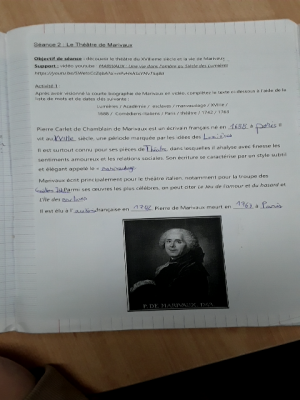 Séance 2 : Le Théâtre de Marivaux
Objectif de séance : découvrir le théâtre du XVIIIème siècle et la vie de Marivaux
Support : vidéo youtube : MARIVAUX : Une vie dans l'ombre au Siècle des Lumières
Activité 1 :
Après avoir visionné la courte biographie de Marivaux en vidéo, complétez le texte ci-dessous à l'aide de la
liste de mots et de dates des suivants :
Lumières / Académie / esclaves / marivaudage / XVIIIe /
1688 / Comédiens-Italiens / Paris / théâtre / 1742 / 1763
Pierre Carlet de Chamblain de Marivaux est un écrivain français né en 1688 à Paris
au XVIIIe siècle, une période marquée par les idées des Lumières
Il est surtout connu pour ses pièces de Théâtre, dans lesquelles il analyse avec finesse les
sentiments amoureux et les relations sociales. Son écriture se caractérise par un style subtil
et élégant appelé le « marivaudage
Marivaux écrit principalement pour le théâtre italien, notamment pour la troupe des
Parmi ses œuvres les plus célèbres, on peut citer Le Jeu de l'amour et du hasard et
L'Île des esclaves
Il est élu à l' française en 1742 Pierre de Marivaux meurt en 1763 à Paris
P. DE MARIVAUX